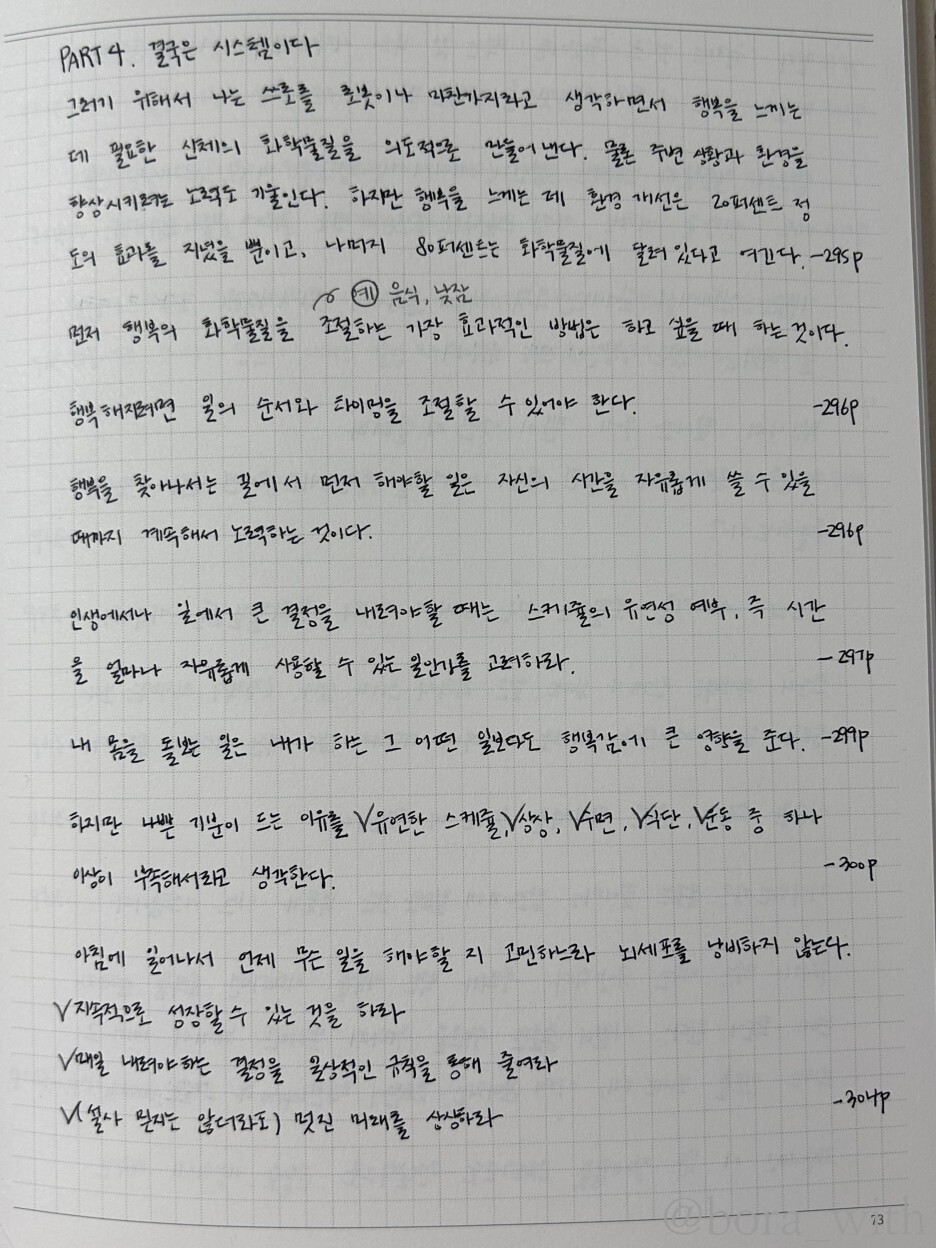 PART 4. 결국은 시스템이다
그러기 위해서 나는 스스로를 로봇이나 마찬가지라고 생각하면서 행복을 느끼는
데 필요한 신체의 화학물질을 의도적으로 만들어 낸다. 물론 주변 상황과 환경을
향상시키려는 노력도 기울인다. 하지만 행복을 느끼는 데 환경 개선은 20퍼센트 정
도의 효과를 지녔을 뿐이고, 나머지 80퍼센트는 화학물질에 달려있다고 여긴다. -295p
예 음식, 낮잠
먼저 행복의 화학물질을 조절하는 가장 효과적인 방법은 하고 싶을 때 하는 것이다.
행복해지려면 일의 순서와 타이밍을 조절할 수 있어야 한다. -296p
행복을 찾아나서는 길에서 먼저 해야할 일은 자신의 시간을 자유롭게 쓸 수 있을
때까지 계속해서 노력하는 것이다. -296p
인생에서나 일에서 큰 결정을 내려야할 때는 스케쥴의 유연성 여부, 즉 시간
을 얼마나 자유롭게 사용할 수 있는 일인가를 고려하라. -297p
내 몸을 돌보는 일은 내가 하는 그 어떤 일보다도 행복감에 큰 영향을 준다. -299p
하지만 나쁜 기분이 드는 이유를 V유연한 스케쥴, V상상, V수면, V식단, V운동 중 하나
이상이 부족해서라고 생각한다. -300p
아침에 일어나서 언제 무슨 일을 해야할 지 고민하느라 뇌세포를 낭비하지 않는다.
V지속적으로 성장할 수 있는 것을 하라
V매일 내려야하는 결정을 일상적인 규칙을 통해 줄여라
V(설사 믿지는 않더라도) 멋진 미래를 상상하라 -304p
@bora_with
73